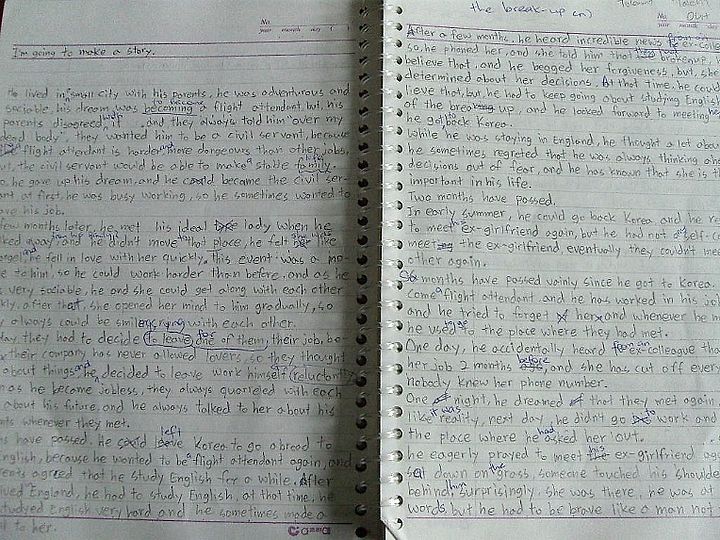 No.
year month day ( )
I'm going to make a story.
He lived in a small city with his parents, he was adventurous and
sociable, his dream was to become becoming a flight attendant but, his
parents disagreed with, and they always told him "over my
dead body", they wanted him to be a civil servant, because
flight attendant is harder and more dangerous than other jobs.
but, the civil servant would be able to make a stable family life
so, he gave up his dream, and he could became the civil ser-
at first, he was busy working, so he sometimes wanted to
leave his job.
few months later, he met his ideal lady when he
away and he didn't move that place, he felt like
angel, and he fell in love with her quickly, this event was a mo-
to him, so he could work harder than before, and as he
very sociable, he and she could get along with each other
quickly. after that, she opened her mind to him gradually, so
they always could be smiling with each other.
day, they had to decide to leave one of them, their job, be-
their company has never allowed lovers, so they thought
about things and he decided to leave work himself (reluctantly)
as he became jobless, they always quarreled with each
about his future, and he always talked to her about his
whenever they met.
have passed, he could left Korea to go abroad to
English, because he wanted to be a flight attendant again, and
agreed that he study English for a while. After
England, he had to study English, at that time, he
studied English very hard and he sometimes made a
to her.
the break-up (n)
No.
year month day
After a few months, he heard incredible news from an er-coll
so, he phoned her, and she told him that broken up,
believe that, and he begged her forgiveness, but, she
determined about her decisions. At that time, he could
lieve that, but, he had to keep going about studying English
of the break up, and he looked forward to meeting her
he got back Korea.
While he was staying in England, he thought a lot about
he sometimes regretted that he was always thinking ab
decisions out of fear, and he has known that she is th
important in his life.
Two months have passed.
In early summer, he could go back Korea and he re
to meet ex-girlfriend again, but he had not a self-c
meet the ex-girlfriend, eventually they couldn't mee
other again.
Six months have passed vainly since he got to Korea.
come a flight attendant and he has worked in his jo
and he tried to forget her and whenever he m
he used to go to the place where they had met.
One day, he accidentally heard from an ex-colleague tha
her job 2 months before ago, and she has cut off every
nobody knew her phone number.
One night, he dreamed that they met again
like it was reality, next day, he didn't go to work and
the place where he had asked her out.
he eagerly prayed to meet his ex-girlfriend ag
sat down on the grass, someone touched his shoulde
behind him surprisingly, she was there, he was at
words but he had to be brave like a man not